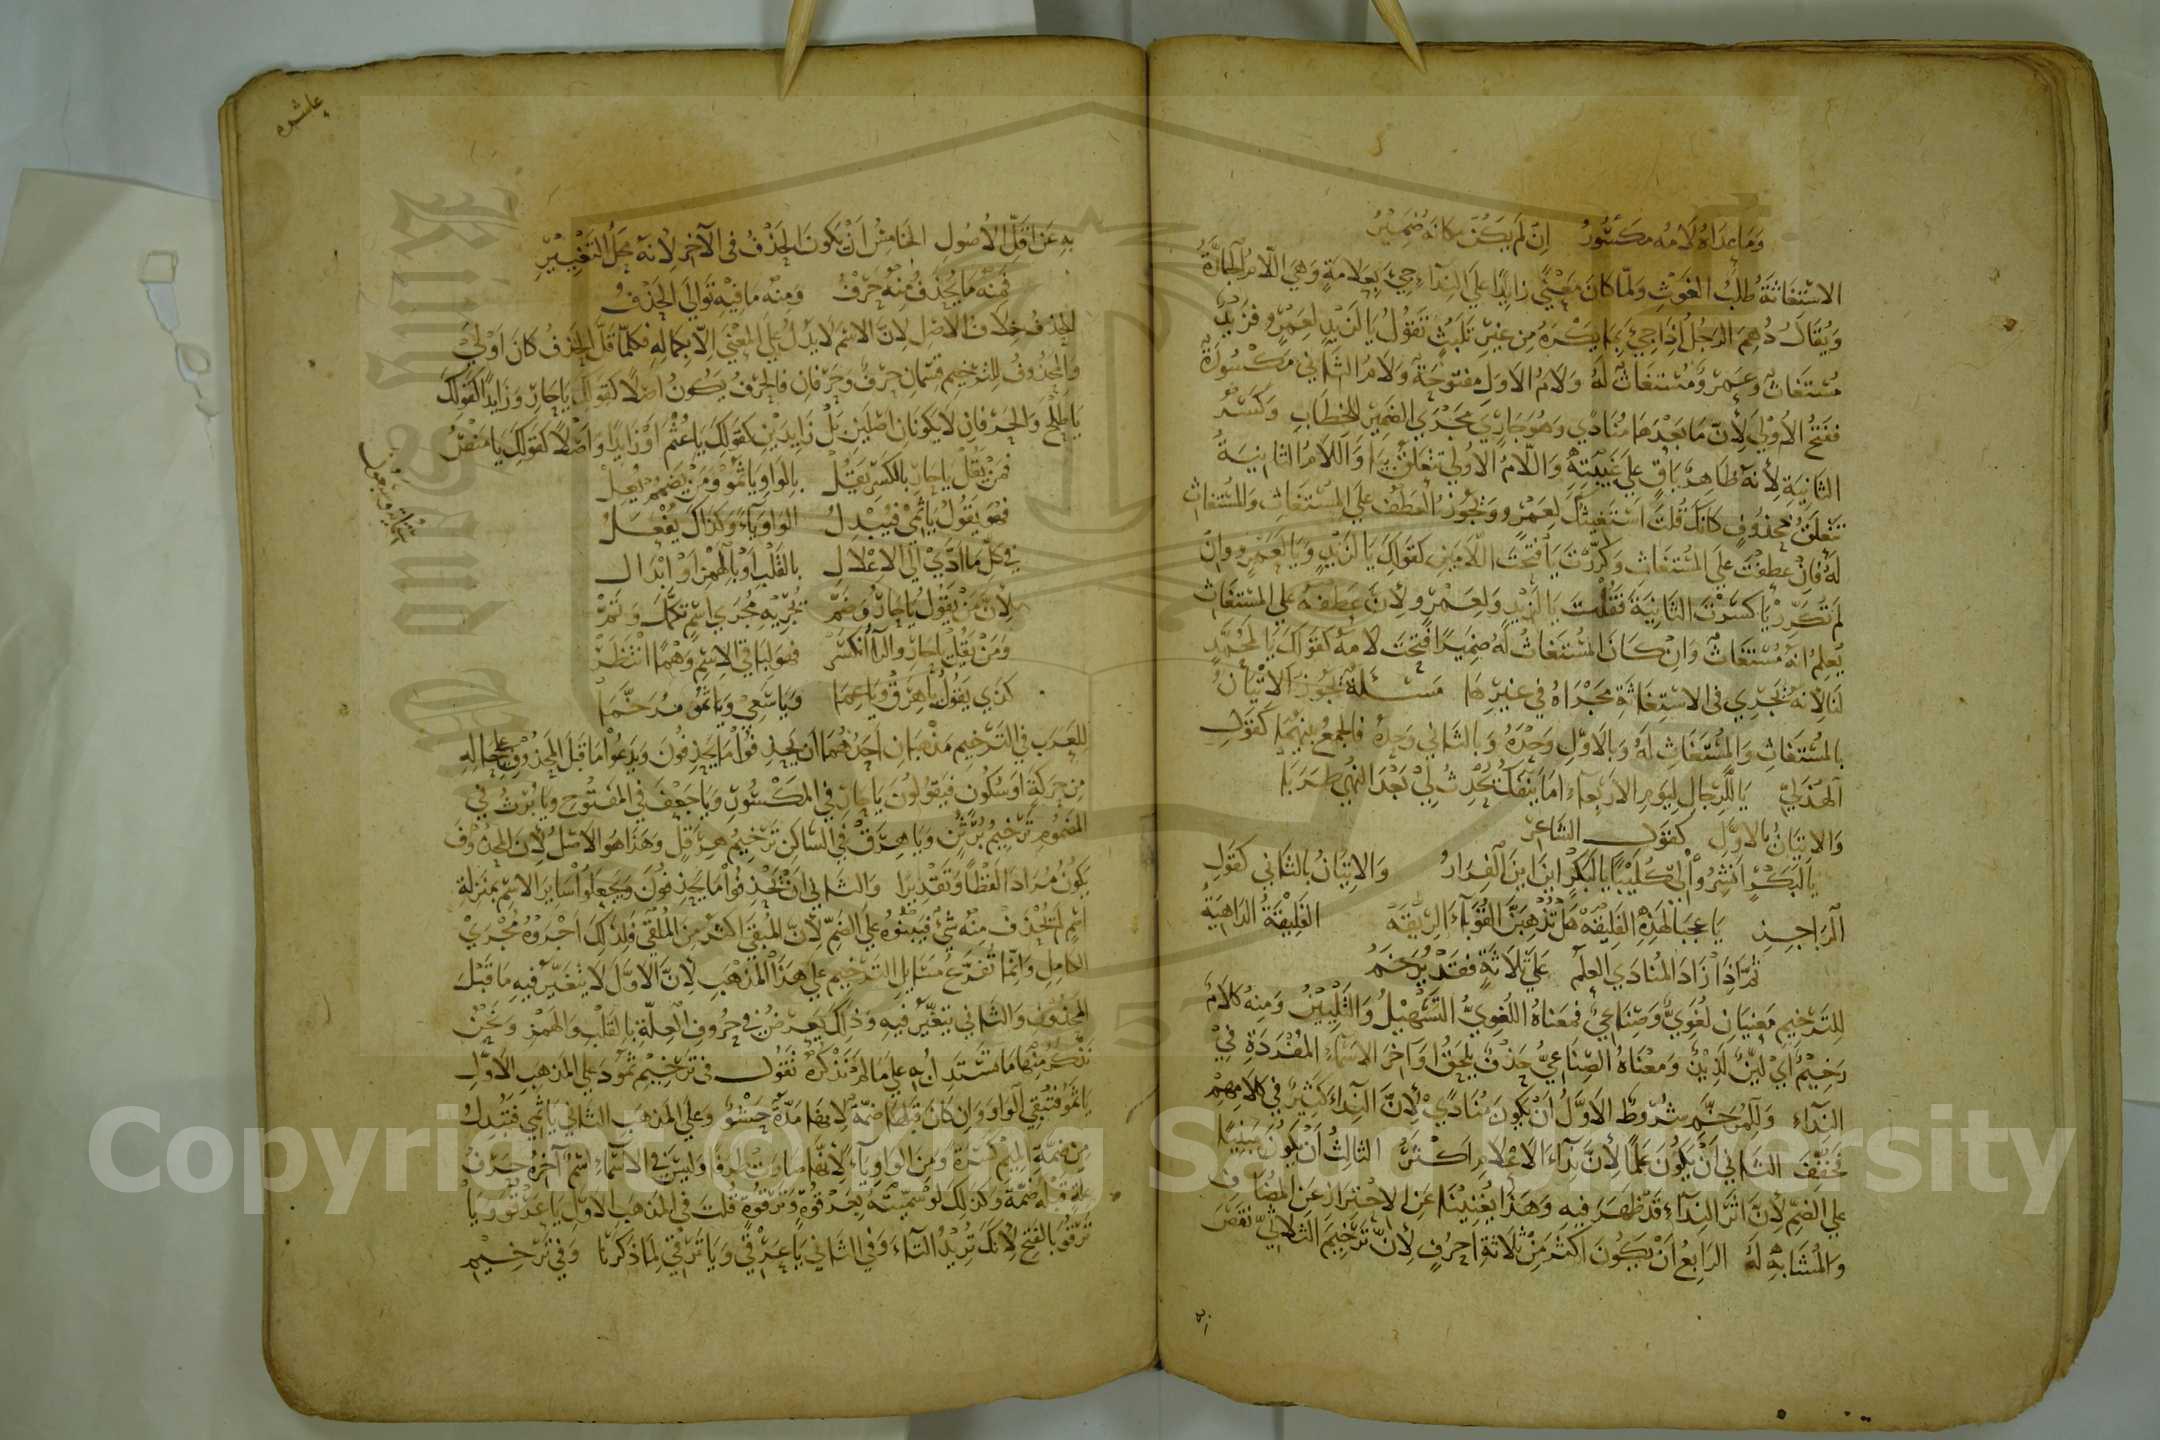 وَمَاعِدَاهُ لَامُه مَكسُورُ اِن لَم يَكُنْ مكَانَهُ ضَمِيْرُ
الاسْتغَاثَةُ طَلَبُ الغَوْثِ وَلمّا كانَ مَعْنًي زايِدًا علي النِدَآءِ جِيَ بِعَلامَةٍ وَهي اللَّامُ الجَارَّةُ
وَيُقَالُ دُهِمَ الرَجُلُ اِذَا جِئَ بِمَا يكْرَهُ مِن غيْرِ تَلَبُّثٍ تَقولُ يَا لَزيدٍ لِعَمْرٍو فزيدٌ
مُسْتغَاثٌ وَعَمْرٌو مُسْتغَاثٌ لَهُ وَلامُ الاوّلِ مفتوحَةٌ وَلامُ الثَّاني مَكسُورَةٌ
ففَتحُ الأُوْلي لِأنّ مَا بَعْدَهَا مُنَادًي وَهُوَ جَارٍي مَجْرَي الضمِيْرِ للخِطَابِ وَكسْرُ
الثانِيَةِ لِأنهُ ظَاهِرٌ بَاقٍ عليَ غَيْبَتِهِ وَاللَّامُ الاُولي تتعَلقُ بِيَا وَاللَّامُ الثانِيَةُ
تتعَلقُ بمحذوفٍ كانّكَ قُلتَ اَسْتَغِيثُكَ لِعَمْرٍو وَيجُوزُ العَطْفُ علي المُسْتغَاثِ وَالمُسْتغاثِ
لهُ فانْ عَطفتَ علي المُسْتغاثِ وَكرَّرْتَ يَا فتحْتَ اللَّامَيْنِ كقوْلِكَ يَا لَزَيْدٍ وَيَا لَعَمْرٍو وَانْ
لَم تُكَرِّرْ يَا كسَرْتَ الثانِيَةَ فقُلْتَ يَا لَزَيْدٍ وَلِعَمْرٍو لِأنّ عَطفَهُ علي المُسْتغاث
يُعلِمُ انهُ مُسْتغَاثٌ وَانْ كَانَ المُسْتغاثُ لَهُ ضمِيرًا فتحتَ لامَهُ كقوْلِكَ يَا لَمُحَمَّدٍ
لَنا لِأنهُ يجْرِي في الاسْتِغاثَةِ مَجْرَاهُ في غيْرِهَا مسْئلة يجُوزُ الاتْيَانُ
بالمُسْتغَاثِ وَالمُسْتغَاثِ لَهُ وَبالاوَّلِ وَحْدَهُ وَبالثاني وَحدهُ فالجمعُ بيْنَهُمَا كقولِ
الهُذَليِّ يَا للَرِجالِ لِيَوْمِ الاَرْبعآءِ امَا يَنفَكُّ يُحْدِثُ لِيْ بَعْدَ النهي طرَبَا
وَالاتيانُ بالاوّلِ كقوْلِ الشاعِر
يَا لَبَكْرٍ اَنْشِرُوا لِيْ كُلَيْبًا يَا لَبَكْرٍ اَينَ اَينَ الفِرَارُ وَالاتيَانُ بالثاني كقولِ
الرَاجِزِ يَا عجبًا لِهَذِهِ الفَلِيْقَهْ هَلْ تُذْهِبَنَّ القُوَبآءَ الرِيقَهْ الفَلِيْقَةُ الداهِيَةُ
ثمَّ اِذَا زَادَ المُنَادَي العلَم عَليَ ثَلاَثةٍ فقدْ يُرَخمُ
لِلتَرْخيمِ مَعْنيَانِ لُغَوِيٌّ وَصِنَاعِيٌّ فمَعْناهُ اللُغَوِيُّ التَسْهِيْلُ وَالتَلْيِيْنُ وَمِنهُ كلَامٌ
رَخِيْمٌ اَيْ لَيِّنٌ لَذِيْذٌ وَمَعْنَاهُ الصِّناعِيُّ حَذْفٌ يلحَقُ اَوَآخِرَ الاَسْمَآءِ المُفْرَدَةِ فيْ
النِدَآءِ وَلِلمُرَخَّمِ شُرُوْطٌ الاَوَّلُ اَنْ يكُونَ مُنَادًيْ لِأنَّ النِدَاءَ كثيرٌ في كَلامِهِمْ
فخُفِّفَ الثاني اَنْ يَكُونَ عَلمًا لِأنَّ نِدآءَ الاَعْلامِ اَكْثَرُ الثالِثُ اَنْ يَكُونَ مَبْنِيًّا
علي الضمِّ لِأنّ اَثَرَ النِدَآءِ قَدْ ظَهَرَ فيهِ وَهَذَا يُغنِيْنَا عَنِ الاحْتِرَازِ عَنِ المُضَافِ
وَالمُشَابهِ لَهُ الرَابعُ اَنْ يَكُونَ اَكثَرَ مِنْ ثلَاثَةِ اَحرُفٍ لِأنّ تَرْخِيمَ الثلاثيّ نَقصٌ
عاشره
بهِ عَن اَقَلِّ الاُصُولِ الخَامِسُ اَنْ يَكُونَ الحَذْفُ في الآخِرِ لِأنهُ مَحَلُّ التَغْيِيْرِ
فمِنْهُ مَا يُحْذَفُ مِنْهُ حَرْفُ وَمِنْهُ مَا فِيْهِ تَوالَي الحَذفُ
الحذفُ خِلَافُ الاَصْلِ لِانّ الاسْمَ لَايدُلُّ علي المَعْني اِلَّا بكمَالِهِ فكلمّا قَلَّ الحَذفُ كانَ اَوْليَ
وَالمَحْذوفُ للترخيمِ قِسْمانِ حرْفٌ وَحَرْفانِ فالحَرفُ يَكُونُ اَصْلًا كقوْلِكَ يَا حَارِ وَزَايدًا كقولِكَ
يَا طلْحَ وَالحَرْفانِ لَا يَكونَانِ اَصْلَيْنِ بَلْ زَايدَيْنِ كقوْلِكَ يَا عُثْمَ اَوْ زَايدًا وَاَصْلًا كقولِكَ يَا مَنْصُ
فمَنْ يَقُلْ يا حَارِ بالكَسْرِ يَقُلْ بالوَاوِ يَا ثَمُوْ وَمَنْ يَضُمُّ يُعِلْ
فهوَ يَقُولُ يَا ثَمِيْ فيُبْدِلُ الوَاوَ يَآءً وَكذَاكَ يُفْعَلُ
في كلّ مَا اَدّيَ الي الاعْلالِ بالقَلْبِ اَوْ بالهَمْزِ اَوْ اِبْدَالِ
لِأنّ مَنْ يَقُولُ يَا حَارُ وَضَمّ يُجْرِيْهِ مُجْرَي اسْمٍ تكَمَّلَ وَتَمّْ
وَمَنْ يَقُلْ يا حارِ وَالرَّآ انكَسَرْ فهوَ لِبَاقي الاسْمِ وَهْمًا انْتَظَرْ
كذي يَقُولُ يَا هِرَقْ وَيَا عِمَا وَيَا سَعِيْ وَيَا ثَمُو مُرَخَّمَا
للعَرَبِ في الترخيمِ مَذْهبَانِ اَحَدُهُمَا اَن يحذِفُوْا مَا يحذِفُونَ وَيَدَعُوْا مَا قبْلَ المحذوفِ عليَ حَالِهِ
مِن حرَكةٍ اَوْ سُكُونٍ فيَقولُونَ يَا حَارِ في المَكْسُورِ وَيَا جَعْفَ في المَفتُوحِ وَيَا بُرْثُ في
المَضمُومِ تَرْخيمُ بُرْثُنٍ وَيَا هِرَقْ في السَّاكِنِ تَرْخيمُ هِرَقْلٍ وَهَذا هُوَ الاَصْلُ لِأنّ المَحْذُوفَ
يَكُونُ مُرَادًا لَفْظًا وَتقْدِيرًا وَالثاني اَنْ يَحْذِفُوْا مَا يحذِفُونَ وَيَجعَلُوْا سَايِرَ الاسْمِ بمَنزِلةِ
اسْمٍ لَم يُحْذَفْ مِنْهُ شيْءٌ فيَبْنُوْهُ علي الضَمِّ لِأنّ المُبقَي اَكثرُ مِنَ المُلْقَي وَلِذلِكَ اَجْرَوْهُ مُجْرَيْ
الكامِلِ وَاِنّمَا تُفَرَّعُ مَسَايلُ الترخيمِ علي هَذَا المَذْهَبِ لِأنَّ الاَوَّلَ لَا يتَغَيَّرُ فيهِ مَا قبْلَ
المَحْذوفِ وَالثاني يتَغَيّرُ فيهِ وَذلِكَ يَعْرِضُ في حُرُوفِ العِلَّةِ بالقَلْبِ وَالهَمْزِ وَنَحْنُ
نَذْكُرُ مِنْهَا مَا تَسْتَدِلُّ بِهِ علي مَا لَمْ نَذْكُرْهُ تَقولُ في تَرْخِيْمِ ثَمُوْدَ علي المَذهَبِ الاَوَّلِ
يَا ثَمُوْ فتُبْقِي الوَاوَ وَاِن كَانَ قبْلهَا ضَمّةٌ لِأنهَا مَدّةٌ حَشْوٌ وَعلي المَذهَبِ الثاني يَا ثَمِي فتُبدِلُ
مِن ضَمّةِ المِيْمِ كَسْرَةً وَمِنَ الوَاوِ يَآءً لِأنهَا صَارَتْ طرَفًا وَليسَ في الاَسْمَآءِ اسْمٌ آخرُهُ حَرْفُ
عِلةٍ قبْلهُ ضَمّةٌ وَكذلِكَ لَوْ سَمّيْتَهُ بِعَرْقُوَةٍ وَتَرْقُوَةٍ قُلتَ في المَذهَبِ الاَوّلِ يَا عَرْقُوَ وَيَا
تَرْقُوَ بالفتحِ لِأنّكَ تُرِيْدُ التآءَ وَفي الثاني يَا عَرْقِي وَيَا تَرْقِي لِمَا ذكَرْنَا وَفي تَرْخِيْمِ